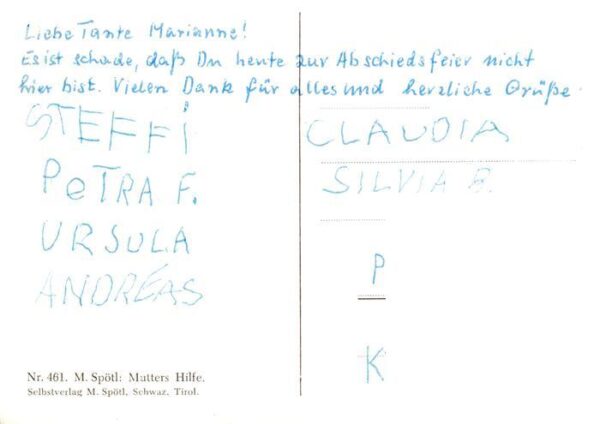 Liebe Tante Marianne!
Es ist schade, daß Du heute zur Abschiedsfeier nicht
hier bist. Vielen Dank für alles und herzliche Grüße.
STEFFI
PETRA F.
URSULA
ANDREAS
CLAUDIA
SILVIA B.
P
K
Nr. 461. M. Spötl: Mutters Hilfe.
Selbstverlag M. Spötl, Schwaz, Tirol.